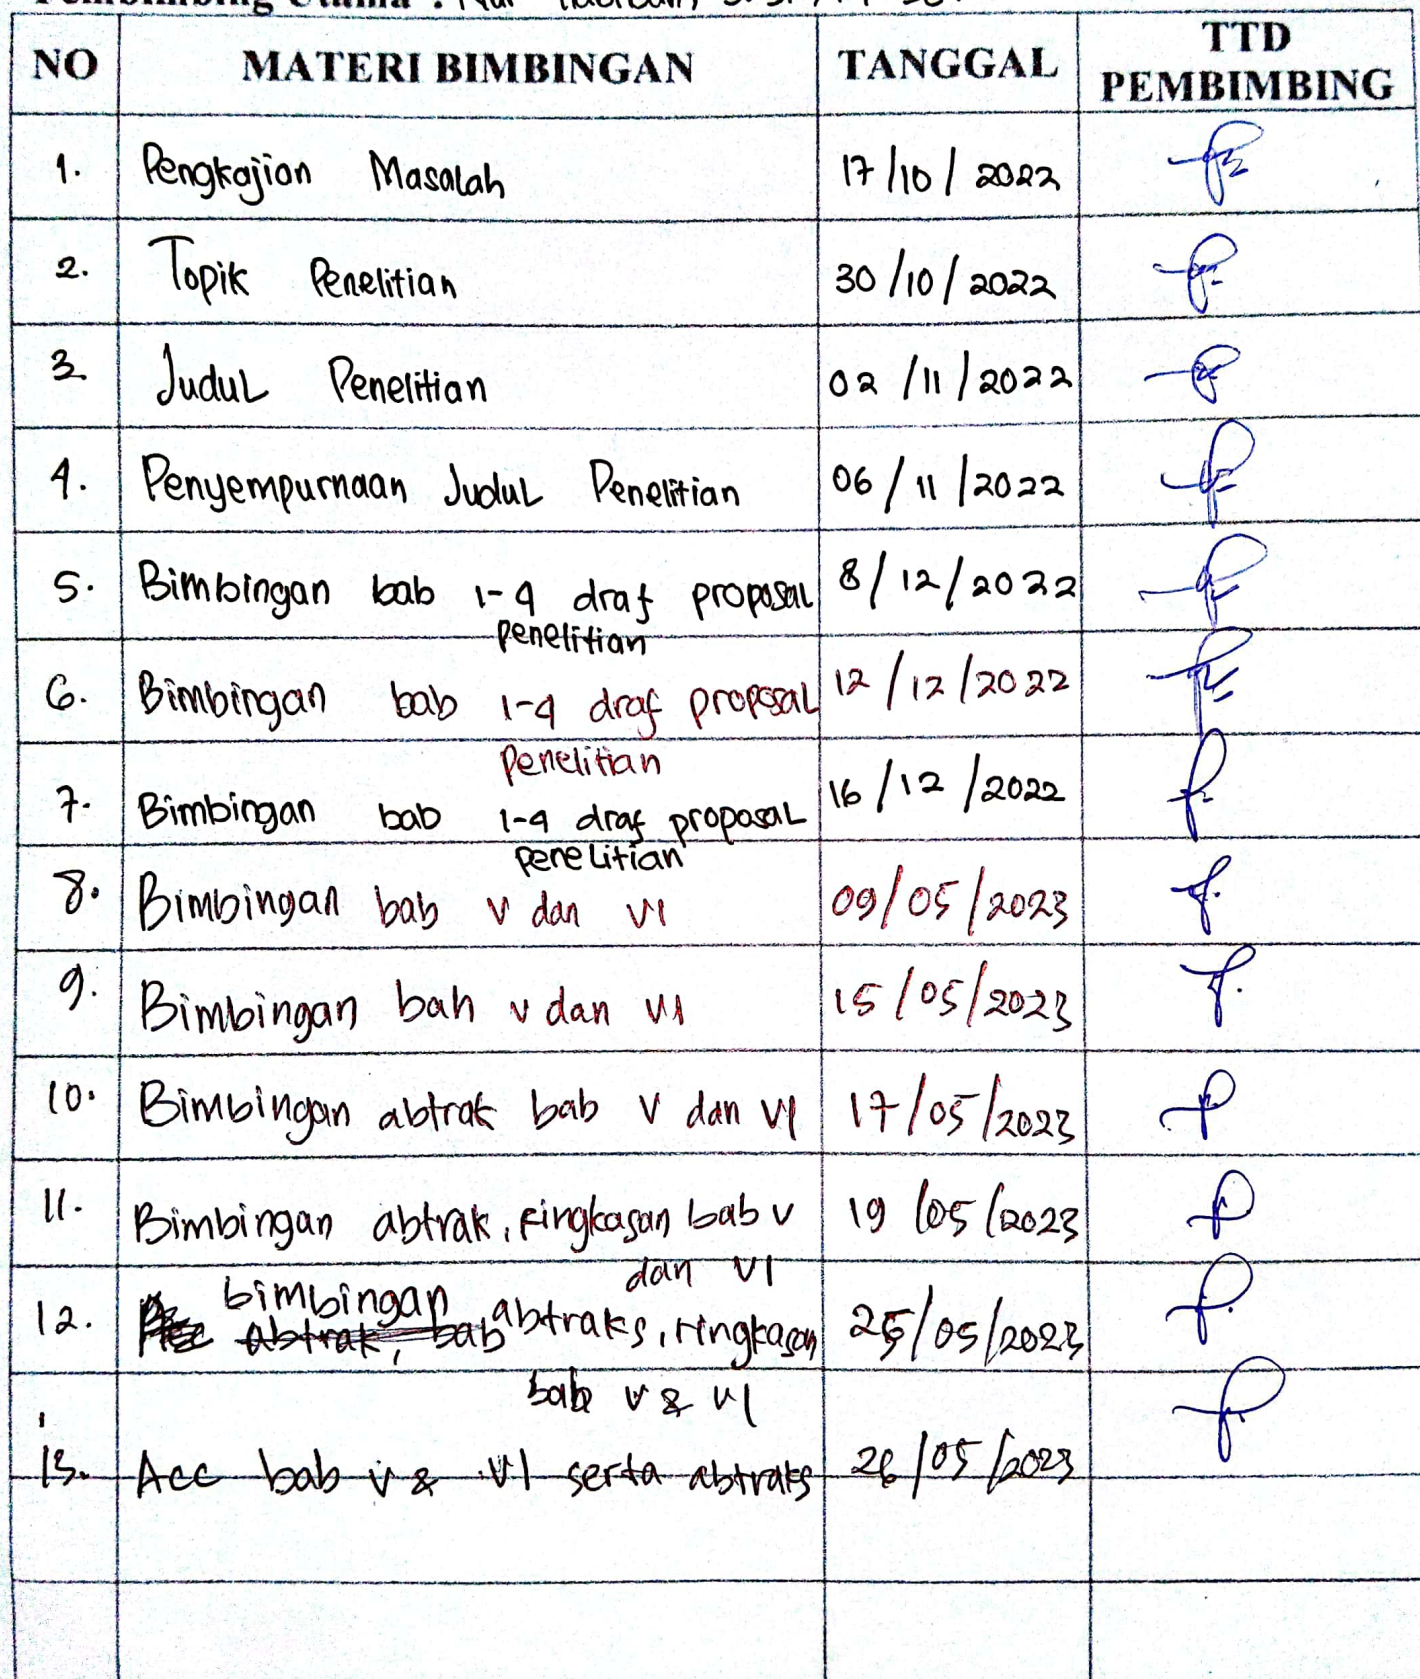 Utama : Nur
NO MATERI BIMBINGAN TANGGAL TTD PEMBIMBING
1. Pengkajian Masalah 17/10/2022
2. Topik Penelitian 30/10/2022
3 Judul Penelitian 02/11/2022
4. Penyempurnaan Judul Penelitian 06/11/2022
5. Bimbingan bab 1-4 draf proposal 8/12/2022
penelitian
6. Bimbingan bab 1-4 draf proposal 12/12/2022
Penelitian
7. Bimbingan bab 1-4 draf proposal 16/12/2022
penelitian
8. Bimbingan bab V dan VI 09/05/2023
9. Bimbingan bah V dan VI 15/05/2023
10. Bimbingan abtrak bab V dan VI 17/05/2023
11. Bimbingan abtrak, ringkasan bab V 19/05/2023
dan VI
12. bimbingan abtraks, ringkasan 25/05/2023
abtrak, bab
bab V & VI
13. Acc bab V & VI serta abtraks 26/05/2023